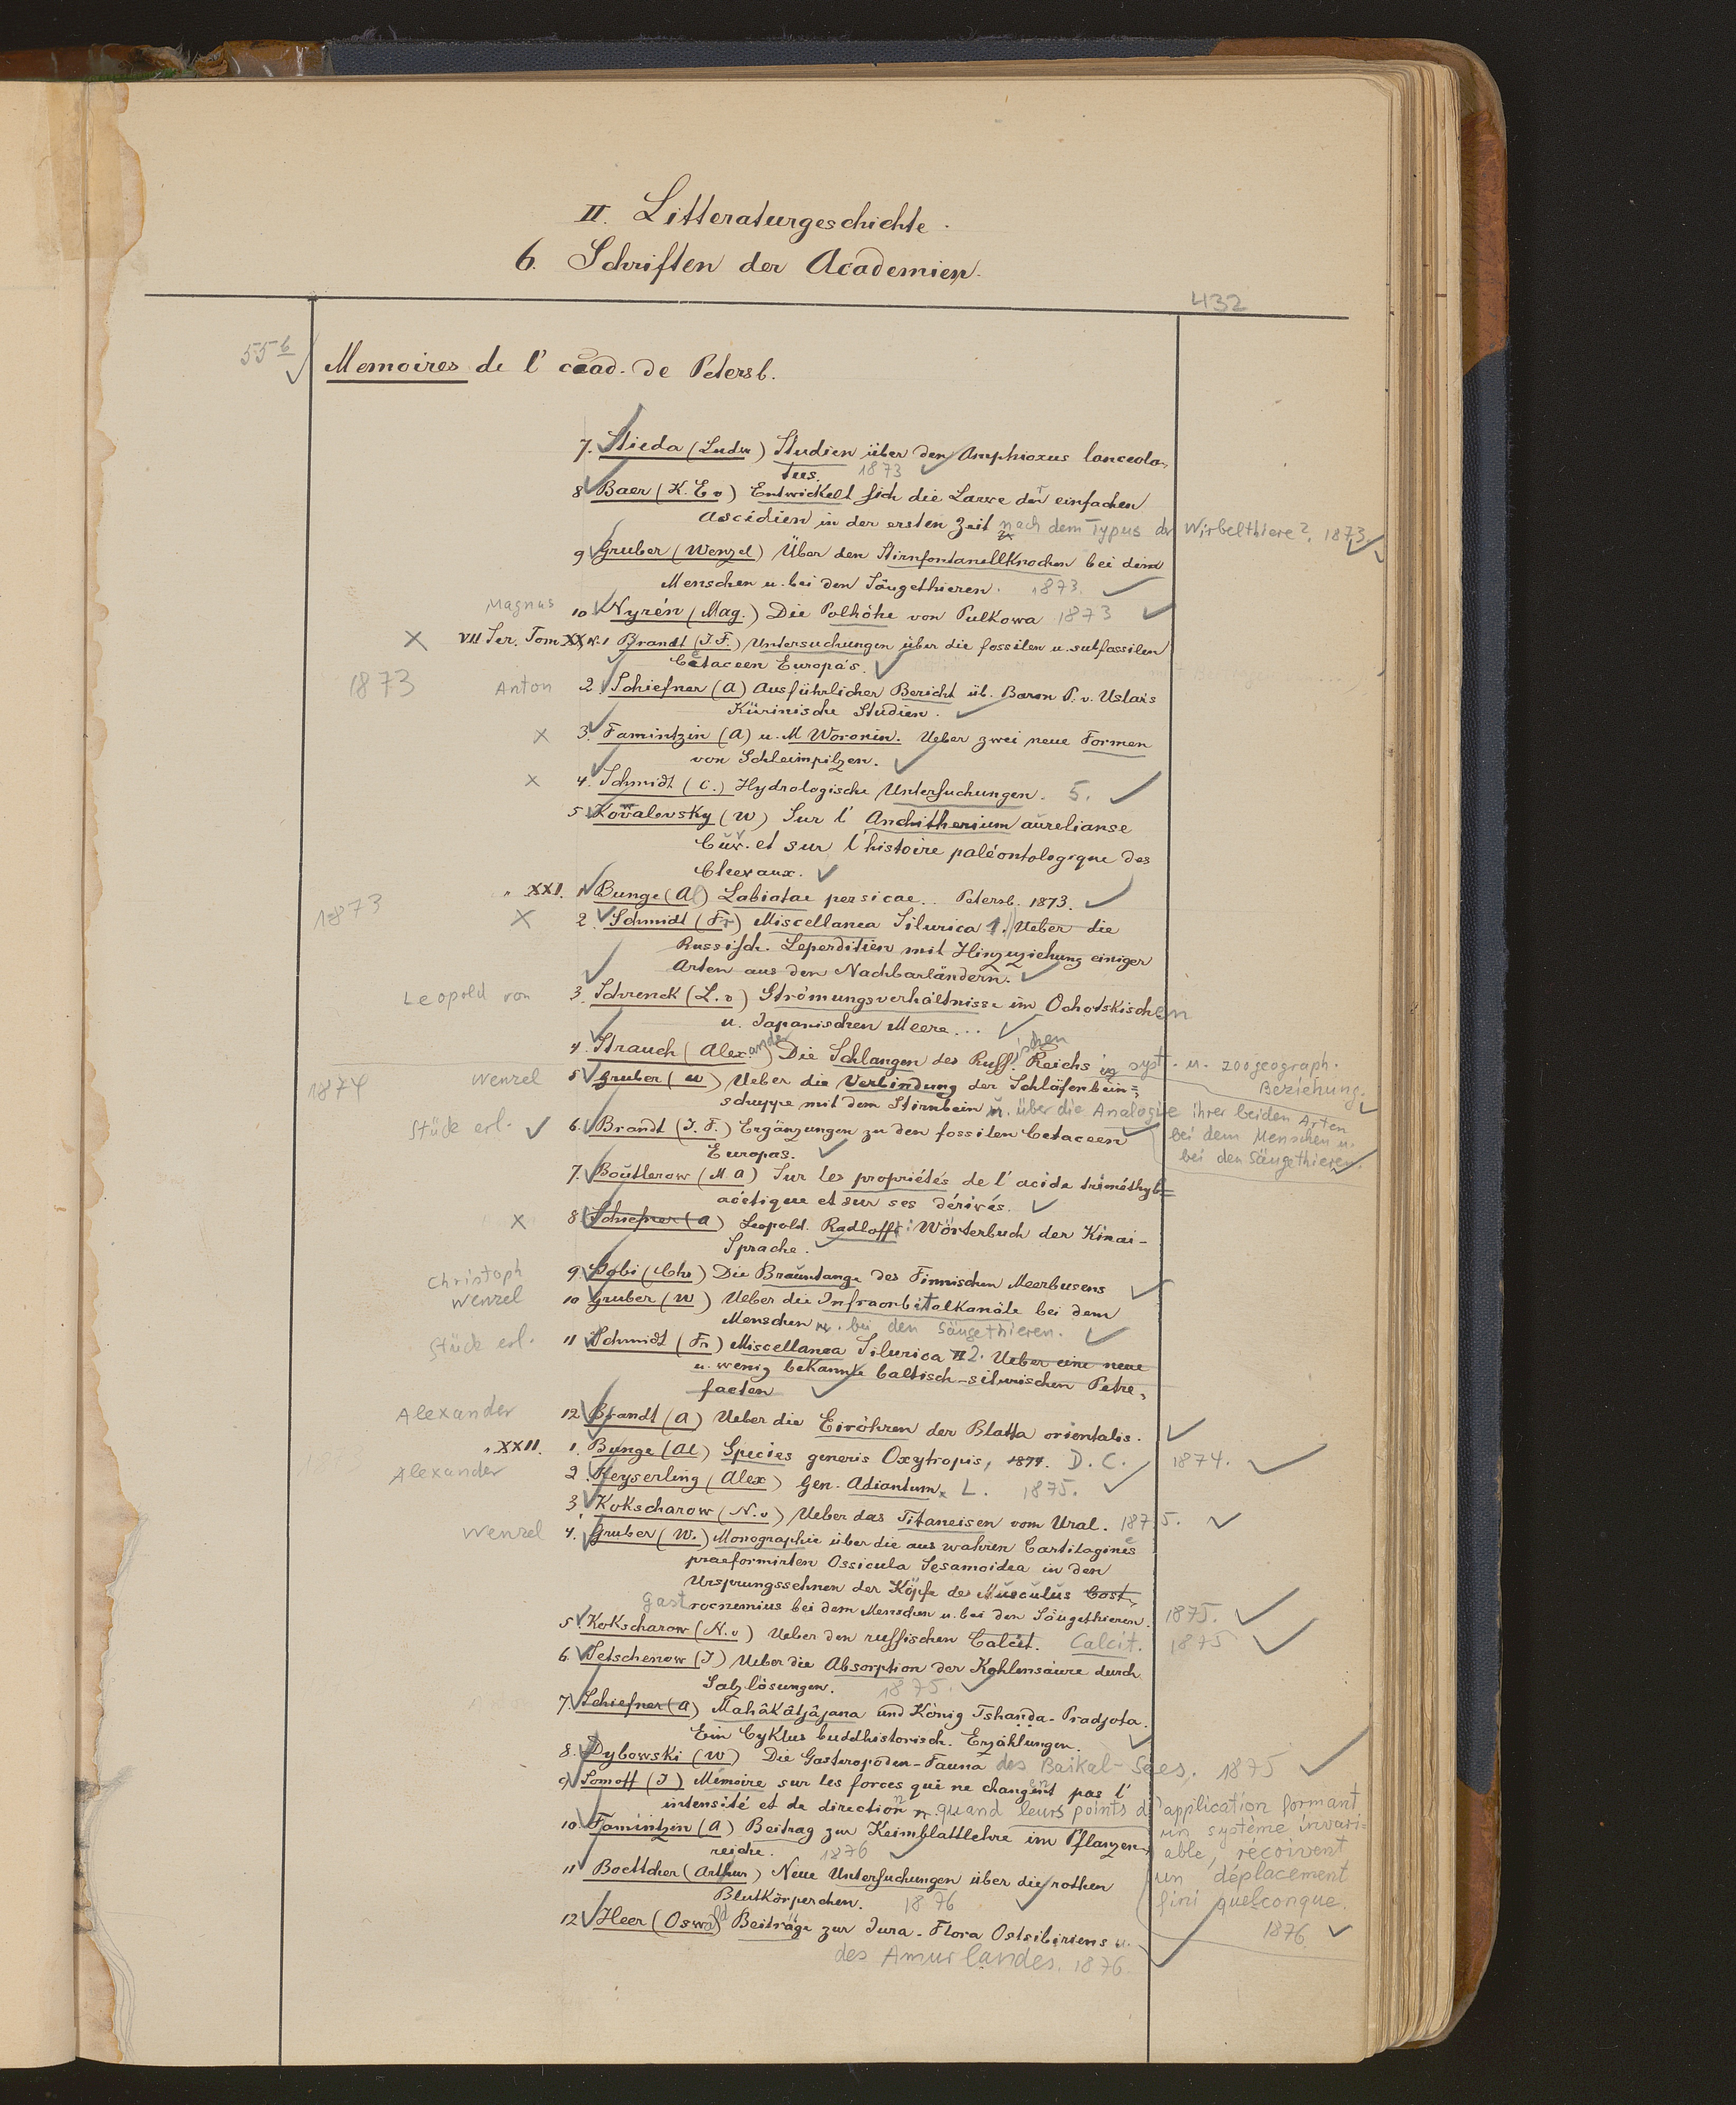 II. Litteraturgeschichte.
6. Schriften der Academien.
432
55 b
Memoires de l' Acad. de Petersb.
7. Stieda (Ludw) Studien über den Amphioxus lanceola-
tus. 1873
8 Baer (K. E v) Entwickelt sich die Larve der einfachen
Ascidien in der ersten Zeit nach dem Typus der Wirbelthiere? 1873.
9 Gruber (Wenzel) Über den Stirnfontanellknochen bei dem
Menschen u. bei den Säugethieren. 1873.
Magnus 10 Nyrén (Mag.) Die Polhöhe von Pulkowa 1873
X VII Ser. Tom XX N.1 Brandt (J F.) Untersuchungen über die fossilen u. subfossilen
Cetaceen Europa's.
1873 Anton 2. Schiefner (A) Ausführlicher Bericht üb. Baron P. v. Uslars
Kürinische Studien.
X 3. Famintzin (A) u. M Woronin. Ueber zwei neue Formen
von Schleimpilzen.
X 4. Schmidt (C.) Hydrologische Untersuchungen. 5.
5 Kowalevsky (W) Sur l' Anchitherium aurelianse
Cuv. et sur l'histoire paléontologique des
Chevaux.
1873 " XXI. 1 Bunge (Al) Labiatae persicae.. Petersb. 1873.
X 2. Schmidt (Fr) Miscellanea Silurica 1. Ueber die
Russisch. Leperditien mit Hinzuziehung einiger
Arten aus den Nachbarländern.
Leopold von 3. Schrenck (L. v) Strömungsverhältnisse im Ochotskischen
u. Japanischen Meere...
4. Strauch (Alexander) Die Schlangen des Russischen Reichs in syst. u. zoogeograph.
Beziehung.
1874 Wenzel 5 Gruber (W) Ueber die Verbindung der Schläfenbein=
schuppe mit dem Stirnbein u. über die Analogie ihrer beiden Arten
bei dem Menschen u.
bei den Säugethieren.
Stück erl. 6. Brandt (J. F.) Ergänzungen zu den fossilen Cetaceen
Europas.
7. Boutlerow (M. A) Sur les propriétés de l'acide triméthyl=
acétique et sur ses dérivés.
X 8 Schiefner (A) Leopold. Radloffs: Wörterbuch der Kinai-
Sprache.
Christoph 9. Gobi (Chr) Die Brauntange des Finnischen Meerbusens
Wenzel 10 Gruber (W) Ueber die Infraorbitalkanäle bei dem
Menschen u. bei den Säugethieren.
Stück erl. 11 Schmidt (Fr) Miscellanea Silurica II 2. Ueber eine neue
u. wenig bekannte baltisch-silurischen Petre-
facten
Alexander 12. Brandt (A) Ueber die Eiröhren der Blatta orientalis.
" XXII. 1. Bunge (Al) Species generis Oxytropis, 1874. D. C. 1874.
Alexander 2. Keyserling (Alex) Gen. Adiantum L. 1875.
3. Kokscharow (N. v) Ueber das Titaneisen vom Ural. 1875.
Wenzel 4. Gruber (W.) Monographie über die aus wahren Cartilagines
praeformirten Ossicula Sesamoidea in den
Ursprungssehnen der Köpfe des Musculus Cost-
Gastrocnemius bei dem Menschen u. bei den Säugethieren. 1875.
5. Kokscharow (N. v) Ueber den russischen Calcit. Calcit. 1875
6. Setschenow (J) Ueber die Absorption der Kohlensäure durch
Salzlösungen. 1875.
7. Schiefner (A) Mahâkâtjâjana und König Tshanda-Pradjota.
Ein Cyklus buddhistorisch. Erzählungen.
8. Dybowski (W) Die Gasteropoden-Fauna des Baikal-Sees. 1875
9. Somoff (J) Mémoire sur les forces qui ne changent pas l'
intensité et de direction quand leurs points d'application formant
un système invari=
able, réçoivent
un déplacement
fini quelconque.
1876
10. Famintzin (A) Beitrag zur Keimblattlehre im Pflanzen-
reiche. 1876
11 Boettcher (Arthur) Neue Untersuchungen über die rothen
Blutkörperchen. 1876
12 Heer (Oswald) Beiträge zur Jura-Flora Ostsibiriens u.
des Amurlandes. 1876.